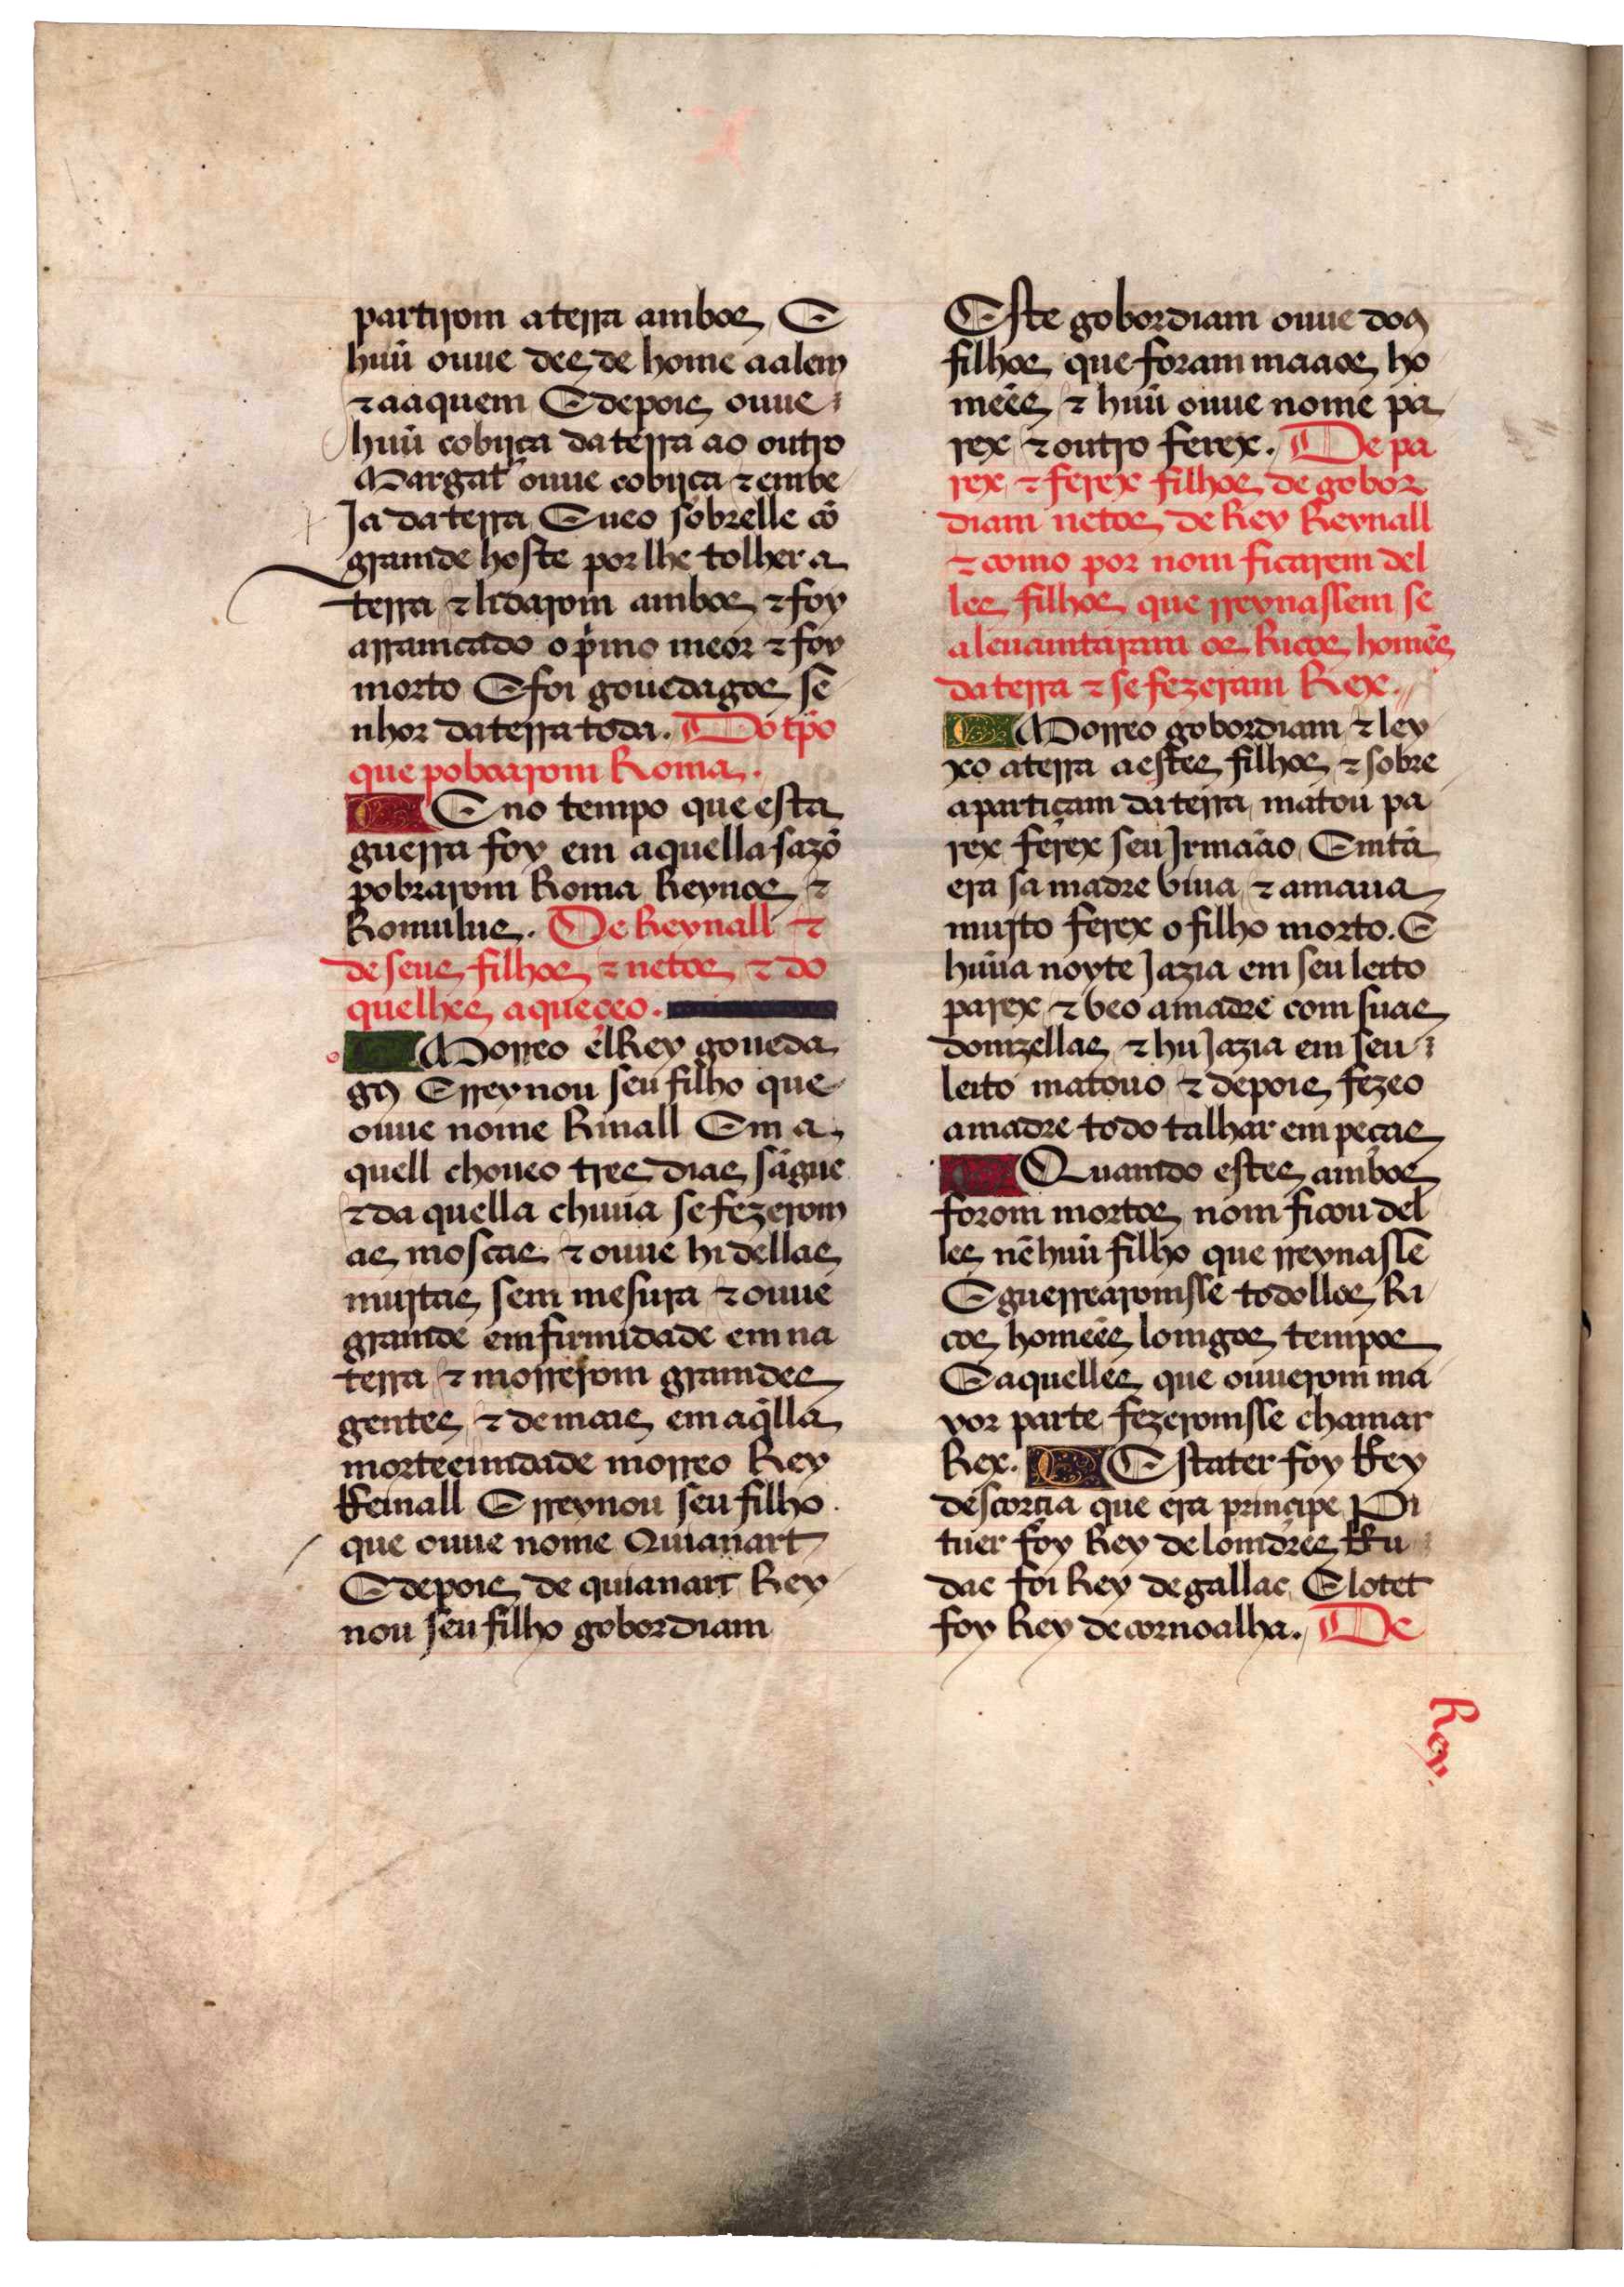 x
partirom a terra ambos E
huũ ouue des de home aalem
⁊ aaquem E depois ouue
huũ cobijça da terra ao outro
Margat ouue cobijça ⁊ enue
Ja da terra E ueo sobrelle cõ
gramde hoste por lhe tolher a
terra ⁊ lidarom ambos ⁊ foy
arramcado o pimo meor ⁊ foy
morto E foi gouedagos se
nhor da terra toda. Do tp̃o
que pobrarom Roma.
E no tempo que esta
guerra foy em aquella sazõ
pobrarom Roma Reynos ⁊
Romulus. De Reynall ⁊
de seus filhos ⁊ netos ⁊ do
que lhes aqueçeo.
Morreo elRey goueda
gos E rreynou seu filho que
ouue nome Rinall Em a
quell choueo tres dias sãgue
⁊ da quella chuuia se fezerom
as moscas ⁊ ouue hi dellas
muitas sem mesura ⁊ ouue
gramde emfirmidade em na
terra ⁊ morrerom gramdes
gentes ⁊ de mais em aq̃lla
morteeimdade morreo Rey
Reinall E rreynou seu filho
que ouue nome Quianart
E depois de quianart Rey
nou seu filho gobordiam
Este gobordiam ouue dos
filhos que foram maaos ho
meẽs ⁊ huũ ouue nome pa
rex ⁊ outro ferex. De pa
rex ⁊ ferex filhos de gobor
diam netos de Rey Reynall
⁊ como por nom ficarem del
les filhos que rreynassem se
aleuamtaram os Ricos homẽs
da terra ⁊ se fezeram Rex.
Morreo gobordiam ⁊ ley
xo a terra a estes filhos ⁊ sobre
a partiçam da terra matou pa
rex ferex seu Jrmaão Emtã
era sa madre viua ⁊ amaua
muito ferex o filho morto. E
huũa noyte Jazia em seu leito
parex ⁊ veo a madre com suas
domzellas ⁊ hu Jazia em seu
leito matouo ⁊ depois fezeo
a madre todo talhar em peças
Quamdo estes ambos
forom mortos nom ficou del
les nẽ huũ filho que rreynassẽ
E guerrearomsse todollos Ri
cos homeẽs lomgos tempos
E aquelles que ouuerom ma
yor parte fezeromsse chamar
Rex. Estater foy Rey
descorçia que era prinçipe Pi
tuer foy Rey de lomdres Ru
dac foi Rey de gallas Elotet
foy Rey de cornoalha. De
Rey.